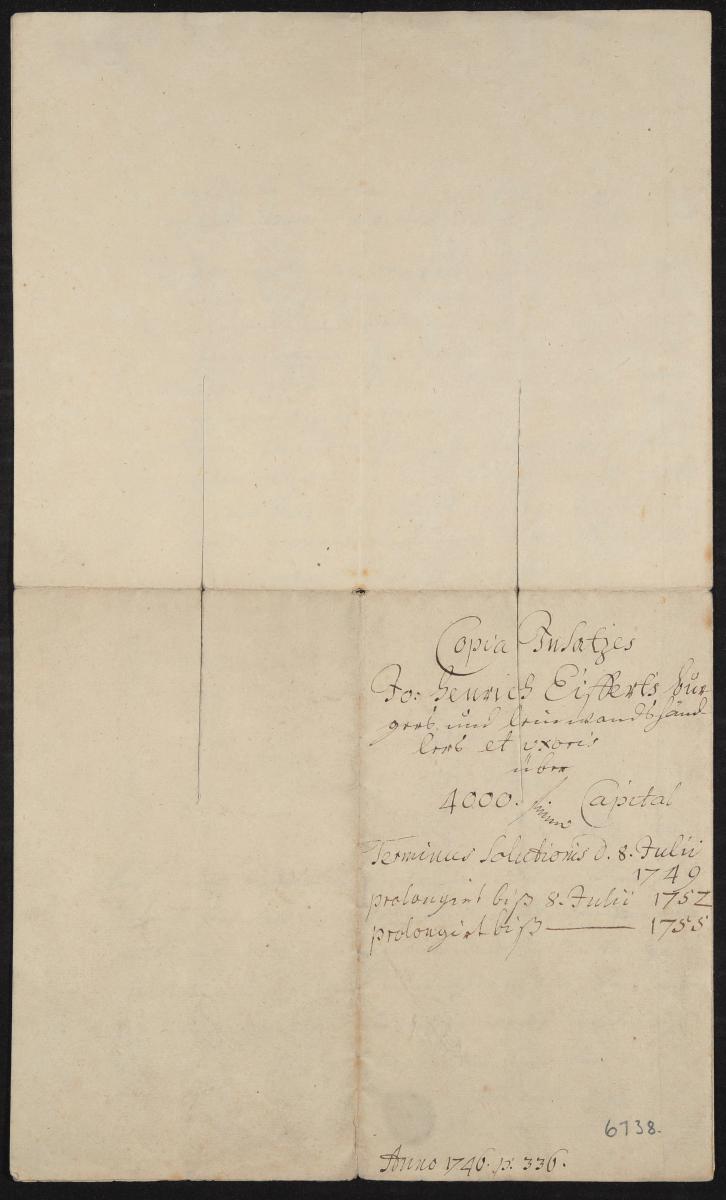 Copia Insatzes
Jo: Henrich Eifferts bur-
gers und leinwandshänd
lers et uxoris
über
4000. Capital
Terminus Solutionis d. 8. Julii
1749
prolongirt biß 8. Julii 1752
prolongirt biß —— 1755
6738.
Anno 1746. p. 336.